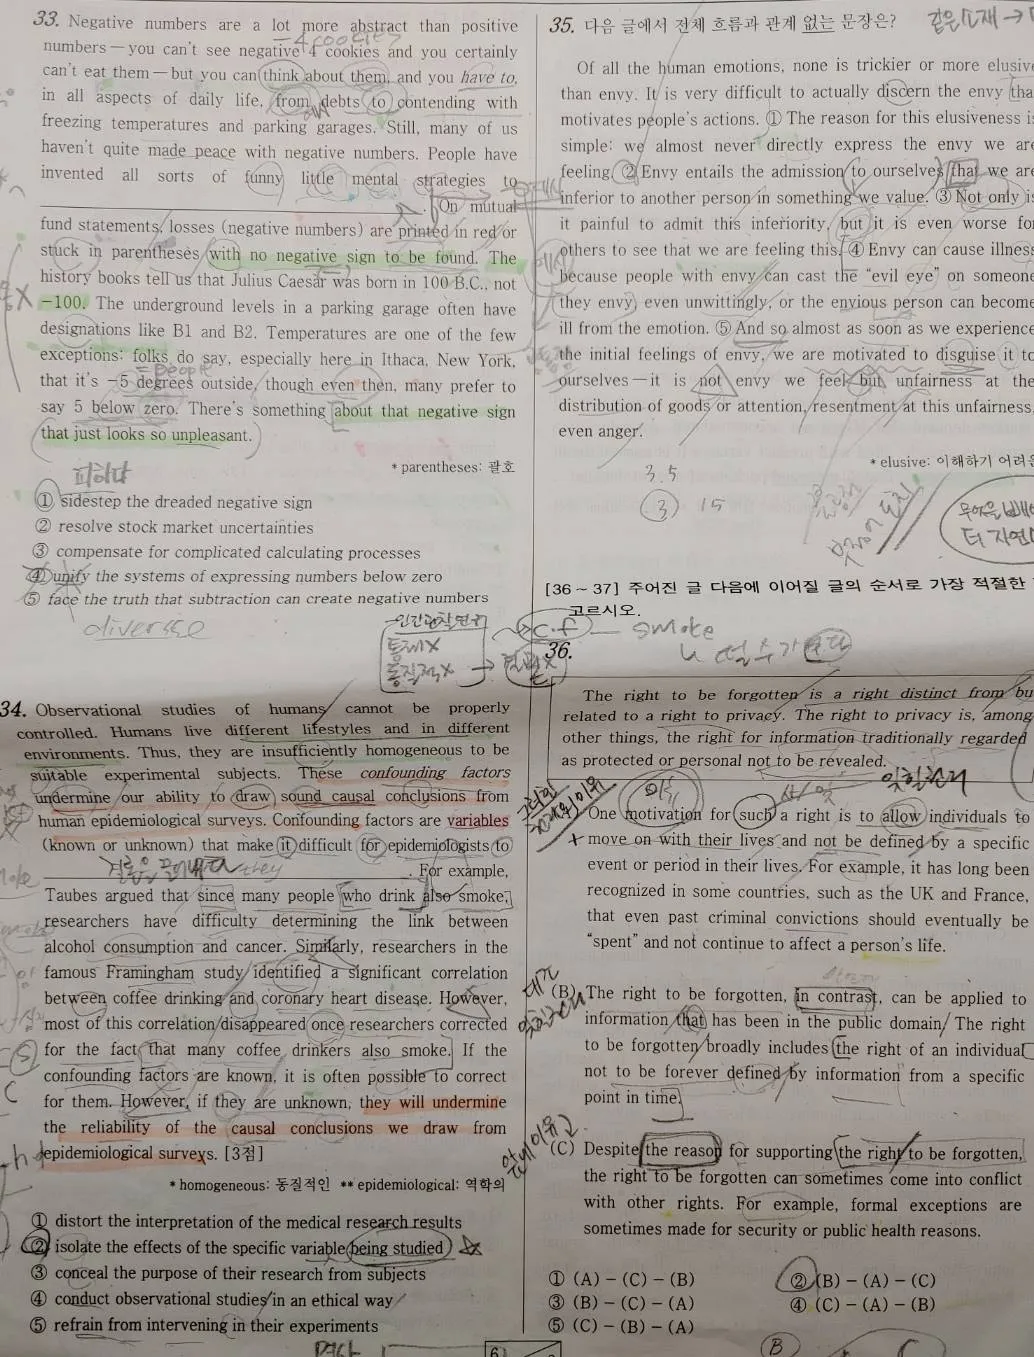 33. Negative numbers are a lot more abstract than positive
numbers — you can't see negative 4 cookies and you certainly
can't eat them — but you can think about them, and you have to,
in all aspects of daily life, from debts to contending with
freezing temperatures and parking garages. Still, many of us
haven't quite made peace with negative numbers. People have
invented all sorts of funny little mental strategies to
____________________. On mutual
fund statements, losses (negative numbers) are printed in red or
stuck in parentheses with no negative sign to be found. The
history books tell us that Julius Caesar was born in 100 B.C., not
−100. The underground levels in a parking garage often have
designations like B1 and B2. Temperatures are one of the few
exceptions: folks do say, especially here in Ithaca, New York,
= people
that it's −5 degrees outside, though even then, many prefer to
say 5 below zero. There's something about that negative sign
that just looks so unpleasant.
* parentheses: 괄호
피하다
① sidestep the dreaded negative sign
② resolve stock market uncertainties
③ compensate for complicated calculating processes
④ unify the systems of expressing numbers below zero
⑤ face the truth that subtraction can create negative numbers
diverse
통제X
동질적X
34. Observational studies of humans cannot be properly
controlled. Humans live different lifestyles and in different
environments. Thus, they are insufficiently homogeneous to be
suitable experimental subjects. These confounding factors
undermine our ability to draw sound causal conclusions from
human epidemiological surveys. Confounding factors are variables
(known or unknown) that make it difficult for epidemiologists to
____________________. For example,
결론을 끌어내다 they
Taubes argued that since many people who drink also smoke,
researchers have difficulty determining the link between
alcohol consumption and cancer. Similarly, researchers in the
famous Framingham study identified a significant correlation
between coffee drinking and coronary heart disease. However,
most of this correlation disappeared once researchers corrected
for the fact that many coffee drinkers also smoke. If the
confounding factors are known, it is often possible to correct
for them. However, if they are unknown, they will undermine
the reliability of the causal conclusions we draw from
epidemiological surveys. [3점]
* homogeneous: 동질적인 ** epidemiological: 역학의
① distort the interpretation of the medical research results
② isolate the effects of the specific variable being studied
③ conceal the purpose of their research from subjects
④ conduct observational studies in an ethical way
⑤ refrain from intervening in their experiments
6
35. 다음 글에서 전체 흐름과 관계 없는 문장은?
같은 소재
Of all the human emotions, none is trickier or more elusive
than envy. It is very difficult to actually discern the envy tha
motivates people's actions. ① The reason for this elusiveness is
simple: we almost never directly express the envy we are
feeling. ② Envy entails the admission to ourselves that we are
inferior to another person in something we value. ③ Not only is
it painful to admit this inferiority, but it is even worse for
others to see that we are feeling this. ④ Envy can cause illness
because people with envy can cast the "evil eye" on someone
they envy, even unwittingly, or the envious person can become
ill from the emotion. ⑤ And so almost as soon as we experience
the initial feelings of envy, we are motivated to disguise it to
ourselves — it is not envy we feel but unfairness at the
distribution of goods or attention, resentment at this unfairness,
even anger.
* elusive: 이해하기 어려운
3.5
3 15
[36 ~ 37] 주어진 글 다음에 이어질 글의 순서로 가장 적절한
고르시오.
c.f — smoke
36.
The right to be forgotten is a right distinct from bu
related to a right to privacy. The right to privacy is, among
other things, the right for information traditionally regarded
as protected or personal not to be revealed.
잊힐권리
One motivation for such a right is to allow individuals to
move on with their lives and not be defined by a specific
event or period in their lives. For example, it has long been
recognized in some countries, such as the UK and France,
that even past criminal convictions should eventually be
"spent" and not continue to affect a person's life.
(B) The right to be forgotten, in contrast, can be applied to
information that has been in the public domain. The right
to be forgotten broadly includes the right of an individual
not to be forever defined by information from a specific
point in time.
(C) Despite the reason for supporting the right to be forgotten,
the right to be forgotten can sometimes come into conflict
with other rights. For example, formal exceptions are
sometimes made for security or public health reasons.
① (A) − (C) − (B)
② (B) − (A) − (C)
③ (B) − (C) − (A)
④ (C) − (A) − (B)
⑤ (C) − (B) − (A)
B